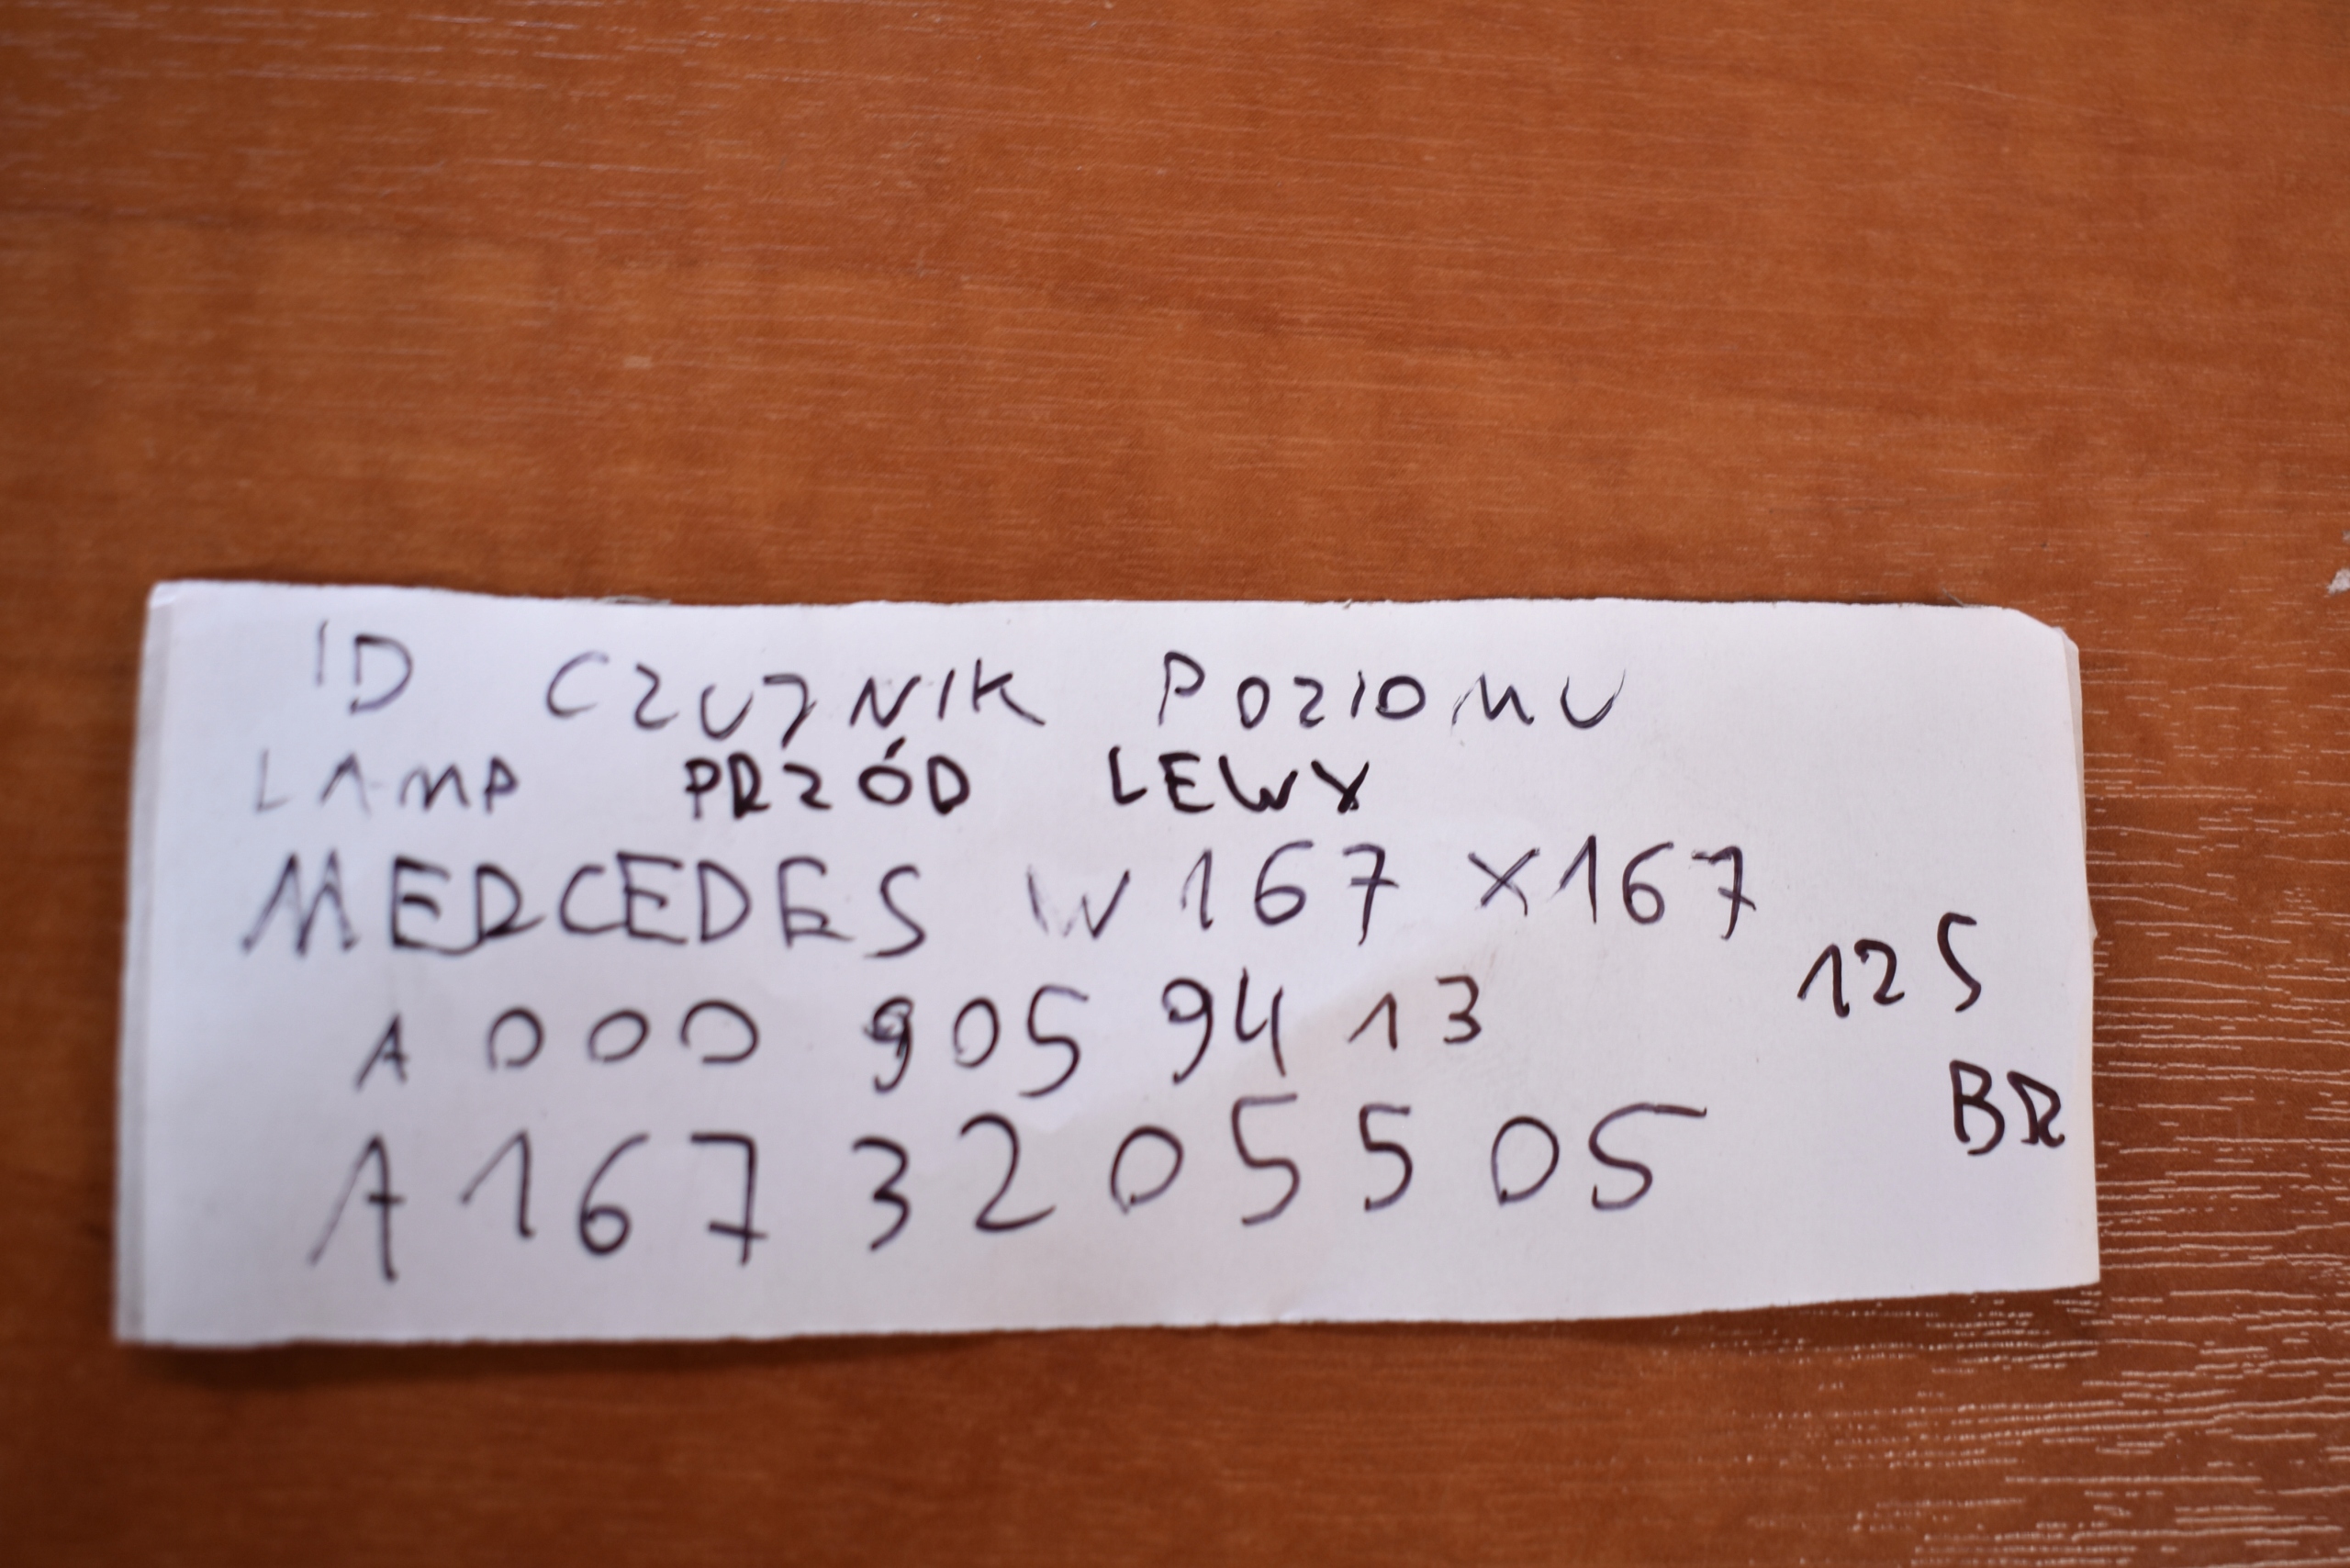 ID CZUJNIK POZIOMU
LAMP PRZÓD LEWY
MERCEDES W167 X167
125
A 000 905 94 13
BR
A 167 320 55 05